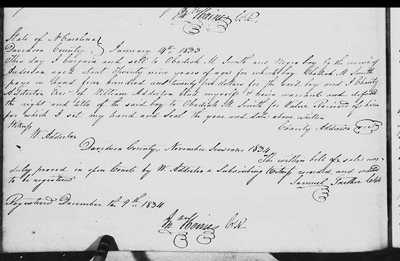 State of N Carolina
Davidson County January 4th 1833
This day I bargain and sold to Obadiah M Smith one Negro boy by the name of
Anderson aged about Twenty nine years of age for which boy Obediah M Smith
pays me hand four hundred and twenty five dollars for the said boy and I Charity
Adderton Exr of William Adderton bind myself & heirs warrant and defend
the right and title of the said boy to Obediah M Smith for Value Received of him
for which I set my hand and seal the year and date above written
Witness Charity Adderton
W Adderton
Davidson County November Session 1834
The written bill of sale was
duly proved in open Court by W. Adderton a Subscribing Witness recorded and ordered
to be registered Samuel
Registered December the 9th 1834